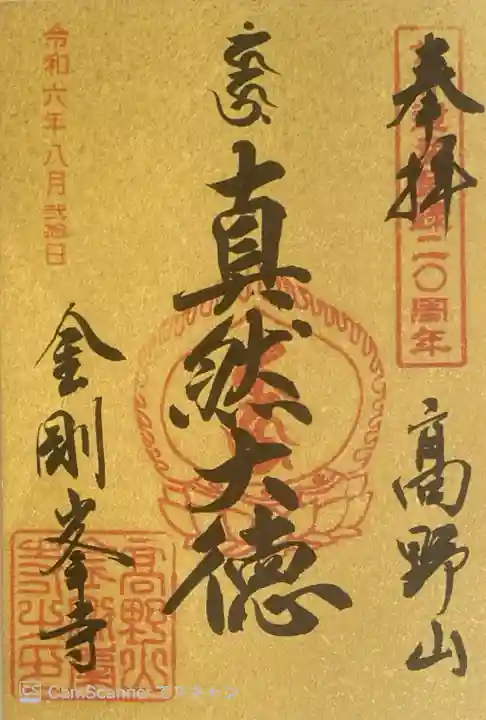 奉拝
二〇周年
高野山
真然大徳
令和六年八月弐拾日
金剛峯寺
CS CamScanner でスキャン